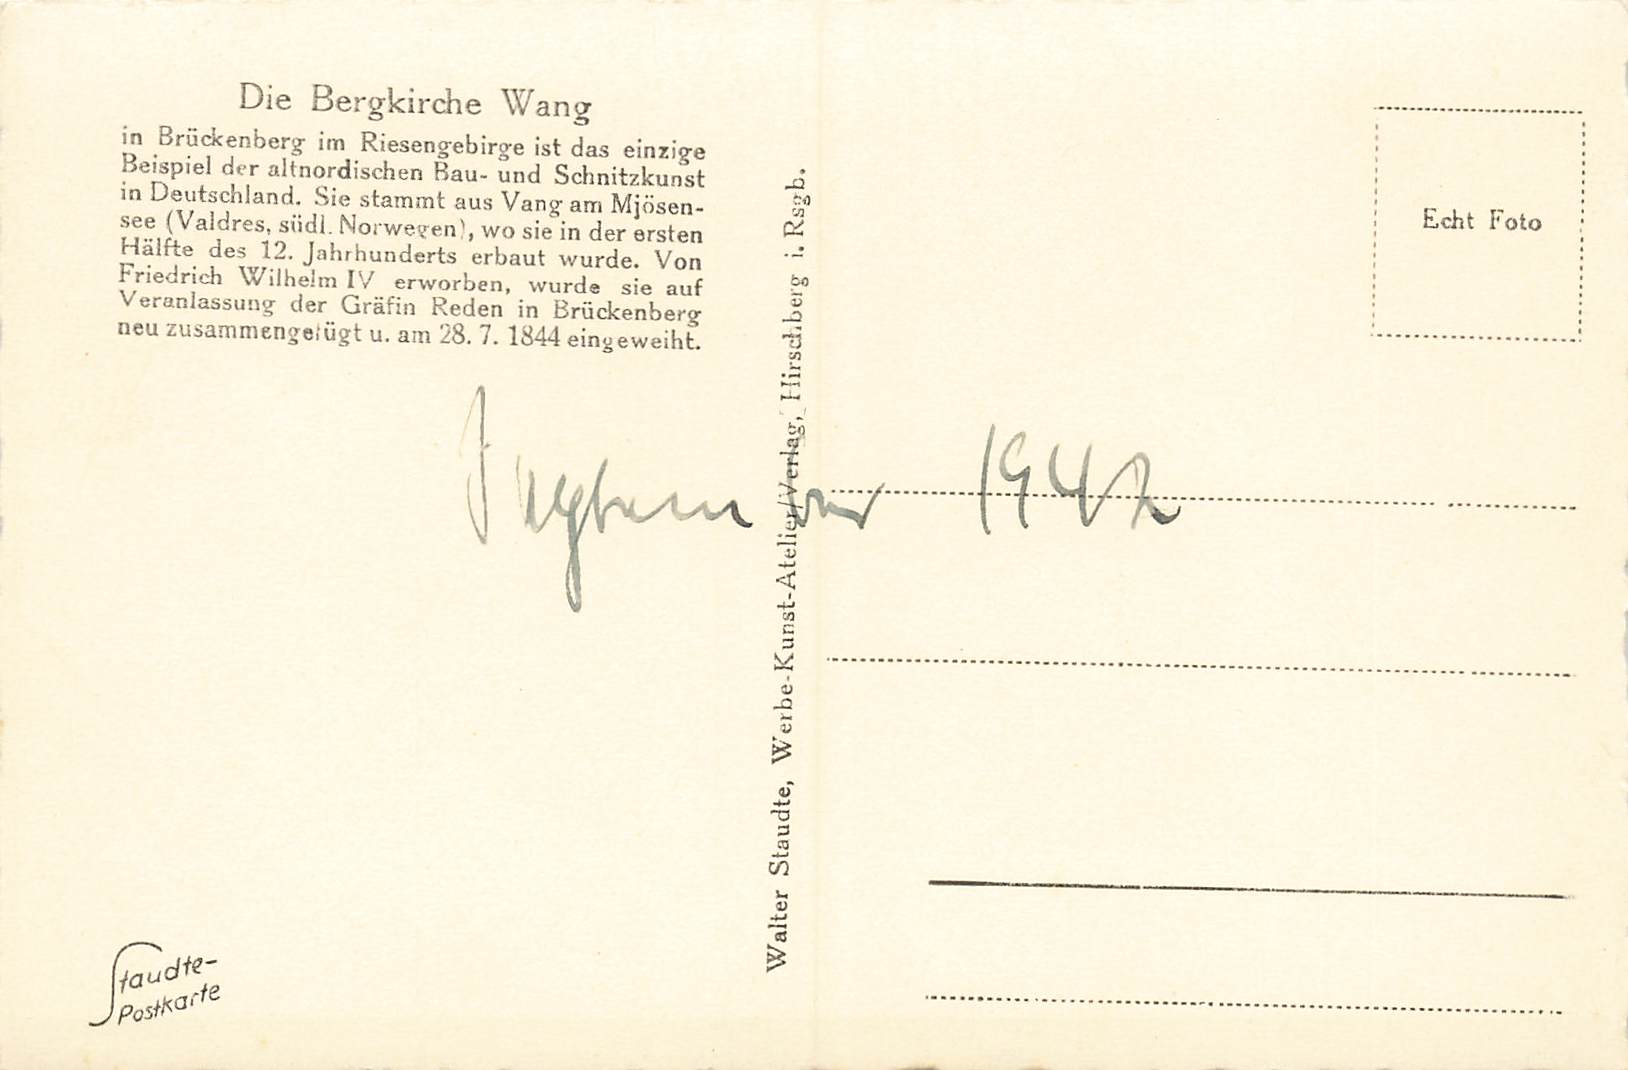 Die Bergkirche Wang
in Brückenberg im Riesengebirge ist das einzige
Beispiel der altnordischen Bau- und Schnitzkunst
in Deutschland. Sie stammt aus Vang am Mjösen-
see (Valdres, südl. Norwegen), wo sie in der ersten
Hälfte des 12. Jahrhunderts erbaut wurde. Von
Friedrich Wilhelm IV erworben, wurde sie auf
Veranlassung der Gräfin Reden in Brückenberg
neu zusammengefügt u. am 28. 7. 1844 eingeweiht.
1942
Staudte-
Postkarte
Walter Staudte, Werbe-Kunst-Atelier/Verlag, Hirschberg i. Rsgb.
Echt Foto